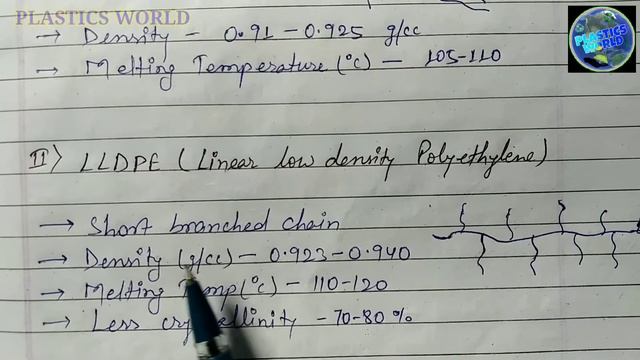 PLASTICS WORLD
PLASTICS
WORLD
→ Density - 0.91 - 0.925 g/cc
→ Melting Temperature (°C) - 105-110
II) LLDPE (Linear low density Polyethylene)
→ Short branched chain
→ Density (g/cc) - 0.923-0.940
→ Melting Temp (°C) - 110-120
→ Less crystallinity - 70-80%